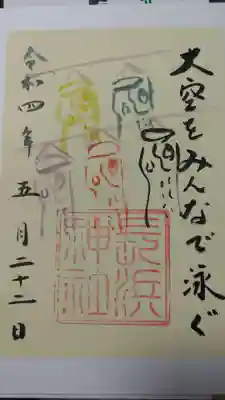 大空をみんなで泳ぐ
長浜神社
令和四年 五月二十二日